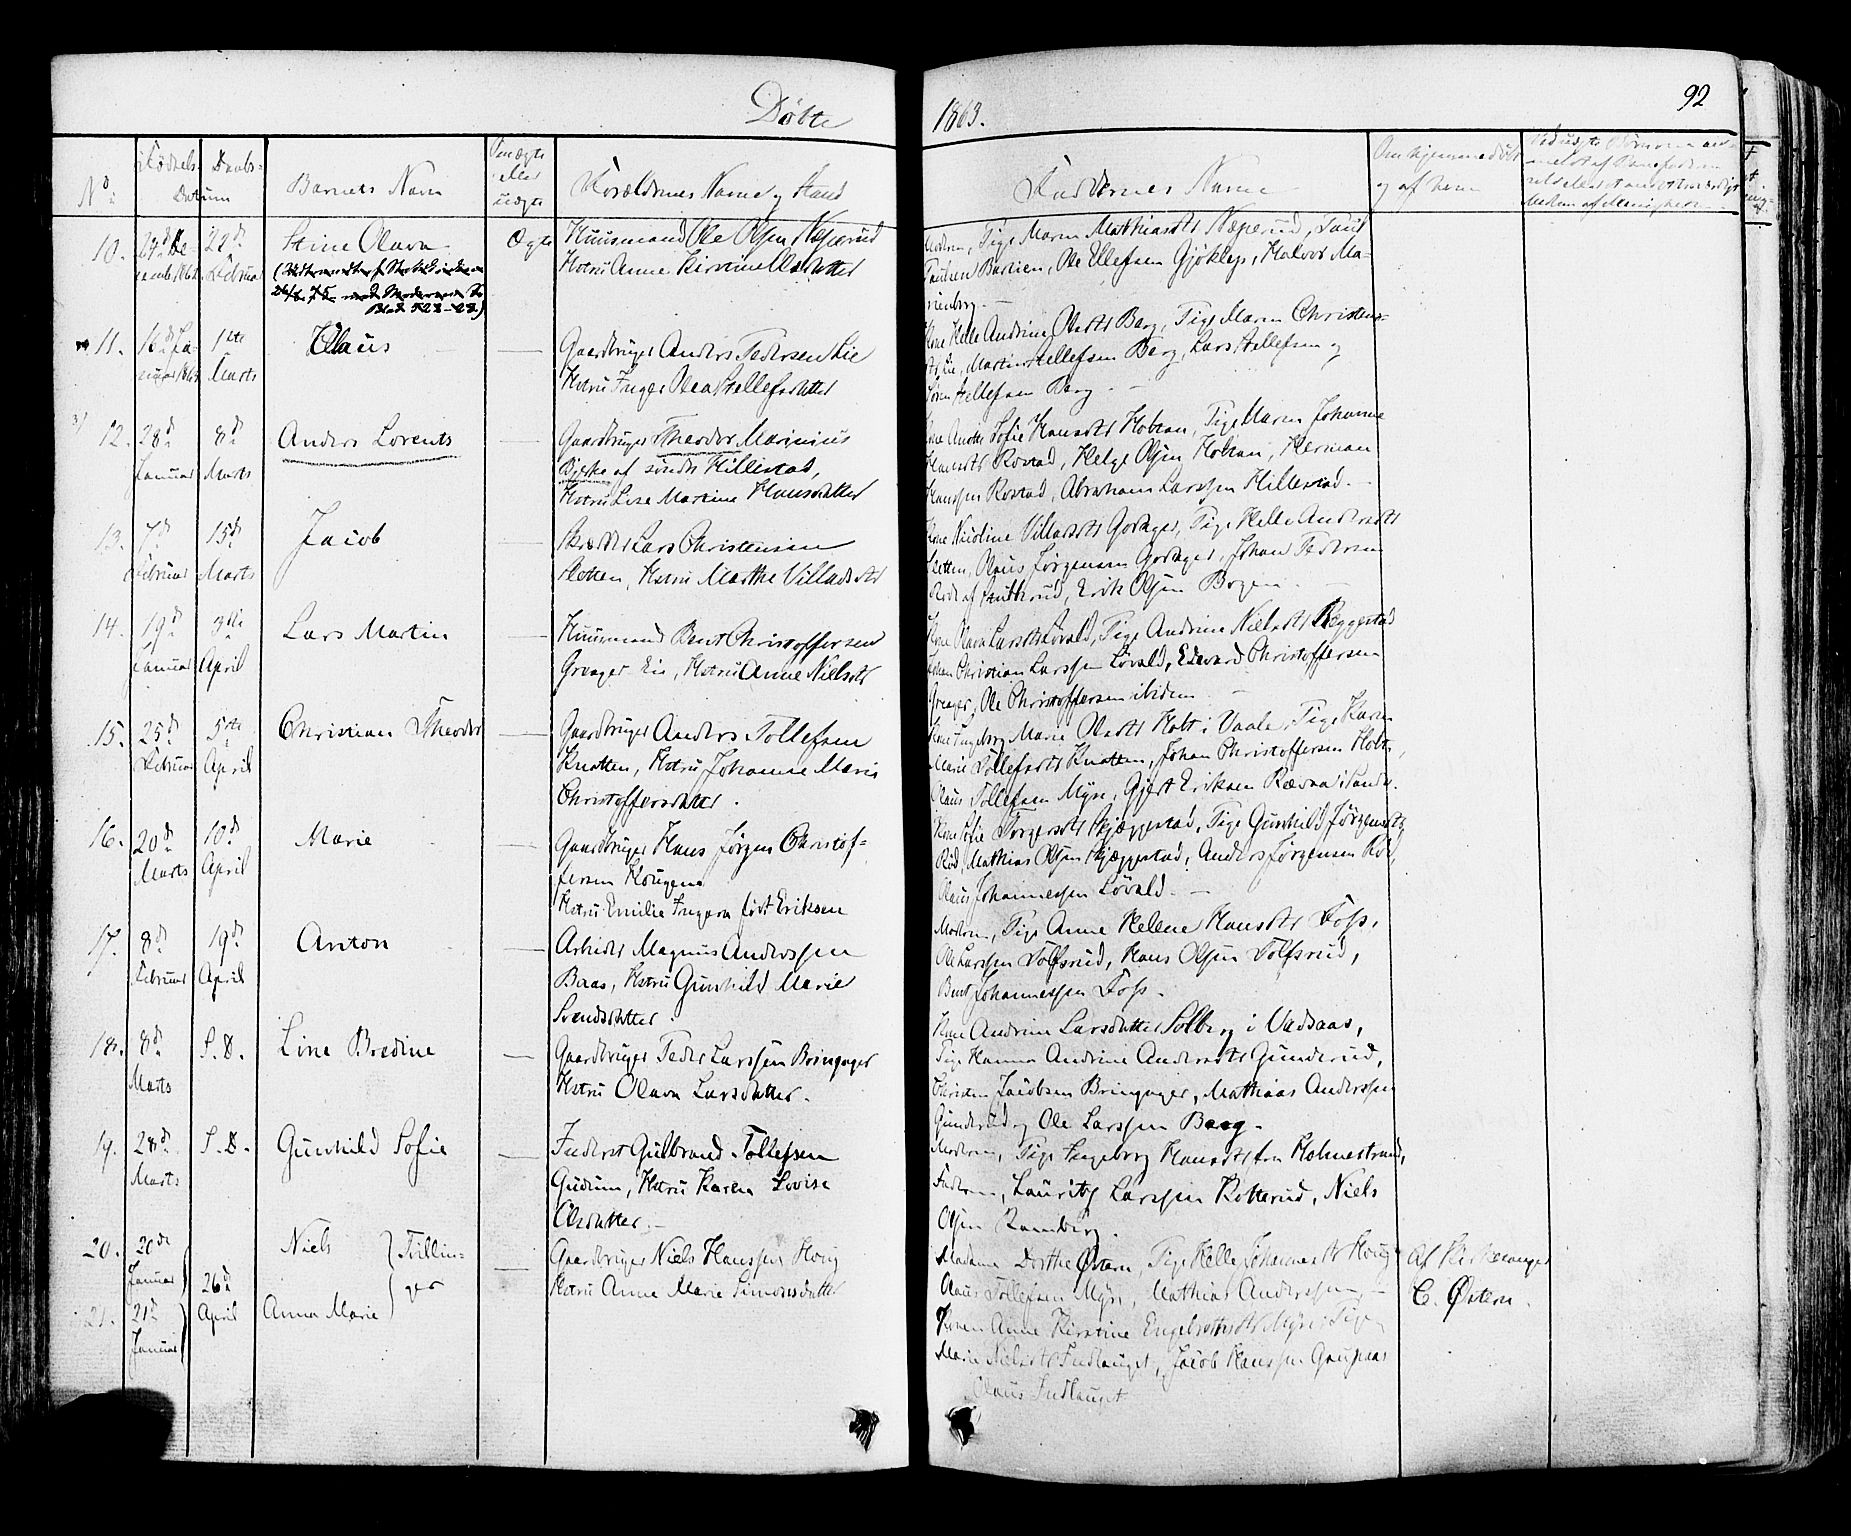 Döbte
1863.
92
No
Födsels-
Daabs-
Datum
Barnets Navn
Om ægte
eller
uægte
Forældrenes Navne og Stand
Faddernes Navne
Om hjemmedöbt
og af hvem
10.
28de
Stine Olava
Ægte
Huusmand Ole Olsen
Hstru Anne Kirstine Olsdatter
Tige Maren Mathiasdtr
Ole Ellefsen Gjöklep, Halvor Ma-
rienborg.
11.
16de Ja-
1ste
Marts
Claus
Gaardbruger Anders Pedersen Lie
Hstru Inger Olea Hellefsdatter
Kone Helle Andrine Olsdtr Berg, Tige Maren Christens-
dtr Lie, Martin Hellefsen Berg, Lars Hellefsen og
Sören Hellefsen Berg.
12.
28de
Januar
8de
Marts
Anders Lorents
Gaardbruger Theodor Marinius
Bjerke af söndre Hillestad,
Hstru Lise Martine Hansdatter
Kone Anette Sofie Hansdtr Holtan, Tige Maren Johanne
Hansdtr Rostad, Helge Olsen Holtan, Herman
Hanssen Rostad, Abraham Larssen Hillestad.
13.
7de
Februar
15de
Marts
Jacob
Skræder Lars Christensen
Sletten, Hstru Marthe Villadsdtr
Kone Nicoline Villadsdtr Godager, Tige Helle Andersdtr
Sletten, Claus Jörgensen Godager, Johan Pedersen
Erik Olsen Bogen.
14.
19de
Januar
3die
April
Lars Martin
Huusmand Bent Christoffersen
Greager Eie, Hstru Anne Nielsdtr
Kone Olava Larsdtr Lövald, Tige Andrine Nielsdtr Ræggestad
Johan Christian Larssen Lövald, Edevard Christoffersen
Greager, Ole Christoffersen ibidem
15.
25de
Februar
5te
April
Christian Theodor
Gaardbruger Anders Tollefsen
Knatten, Hstru Johanne Marie
Christoffersdatter.
Kone Ingeborg Marie Olsdtr Holt i Vaale, Tige Karen
Marie Tollefsdtr Knatten, Johan Christoffersen Holt,
Claus Tollefsen Myre, Gjert Eriksen
16.
20de
Marts
10de
April
Marie
Gaardbruger Hans Jörgen Christof-
fersen Hougene
Hstru Emilie Ingvora födt Eriksen
Kone Sofie Torgersdtr Skjæggestad, Tige Gunhild Jörgensdtr
Röd, Mathias Olsen Skjæggestad, Anders Jörgensen Röd,
Claus Johannessen Lövald.
17.
8de
Februar
19de
April
Anton
Arbeider Magnus Anderssen
Baas, Hstru Gunhild Marie
Svendsdatter.
Moderen, Tige Anne Helene Hansdtr Foss,
Ole Larssen Tolfsrud, Hans Olsen Tolfsrud,
Bent Johannessen Foss.
18.
8de
Marts
S.D.
Line Bredine
Gaardbruger Peder Larssen Bringager
Hstru Olava Larsdatter.
Kone Andrine Larsdatter Solberg i Vadsaas,
Tige Hanna Andrine Andersdtr Gunderud,
Christen Jacobsen Bringager, Mathias Anderssen
Gunderud og Ole Larssen Berg.
19.
28de
Marts
S.D.
Gunhild Sofie
Inderst Gulbrand Tollefsen
Gudum, Hstru Karen Lovise
Olsdatter.
Moderen, Tige Ingeborg Hansdtr fra Holmestrand,
Faderen, Lauritz Larssen Rotterud, Niels
Olsen Ramberg.
20.
20de
Januar
Niels
Tvillin-
ger
Gaardbruger Niels Hanssen Houg
Hstru Anne Marie Simonsdatter
Madame Dorthe Östern, Tige Helle Johannesdtr Houg
Claus Tollefsen Myre, Mathias Anderssen
Af Kirkesanger
C. Östern.
21.
21de
Januar
26de
April
Anna Marie
Konen Anne Kirstine Engebretsdtr Myre, Tige
Marie Nielsdtr Indlauget, Jacob Hanssen Gaupaas
Claus Indlauget